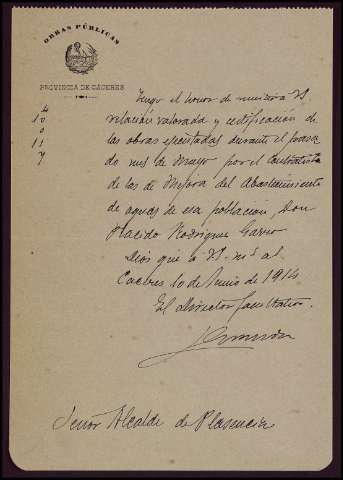 OBRAS PÚBLICAS
PROVINCIA DE CÁCERES
Tengo el honor de remitir a VS
relación valorada y certificación de
las obras ejecutadas durante el pasa
do mes de Mayo por el Contratista
de las de Mejora del Abastecimiento
de aguas de esa población, Don
Placido Rodriguez
Dios gue a VS. ms as
Caceres 10 de Junio de 1914
El Director facultativo.
Señor Alcalde de Plasencia